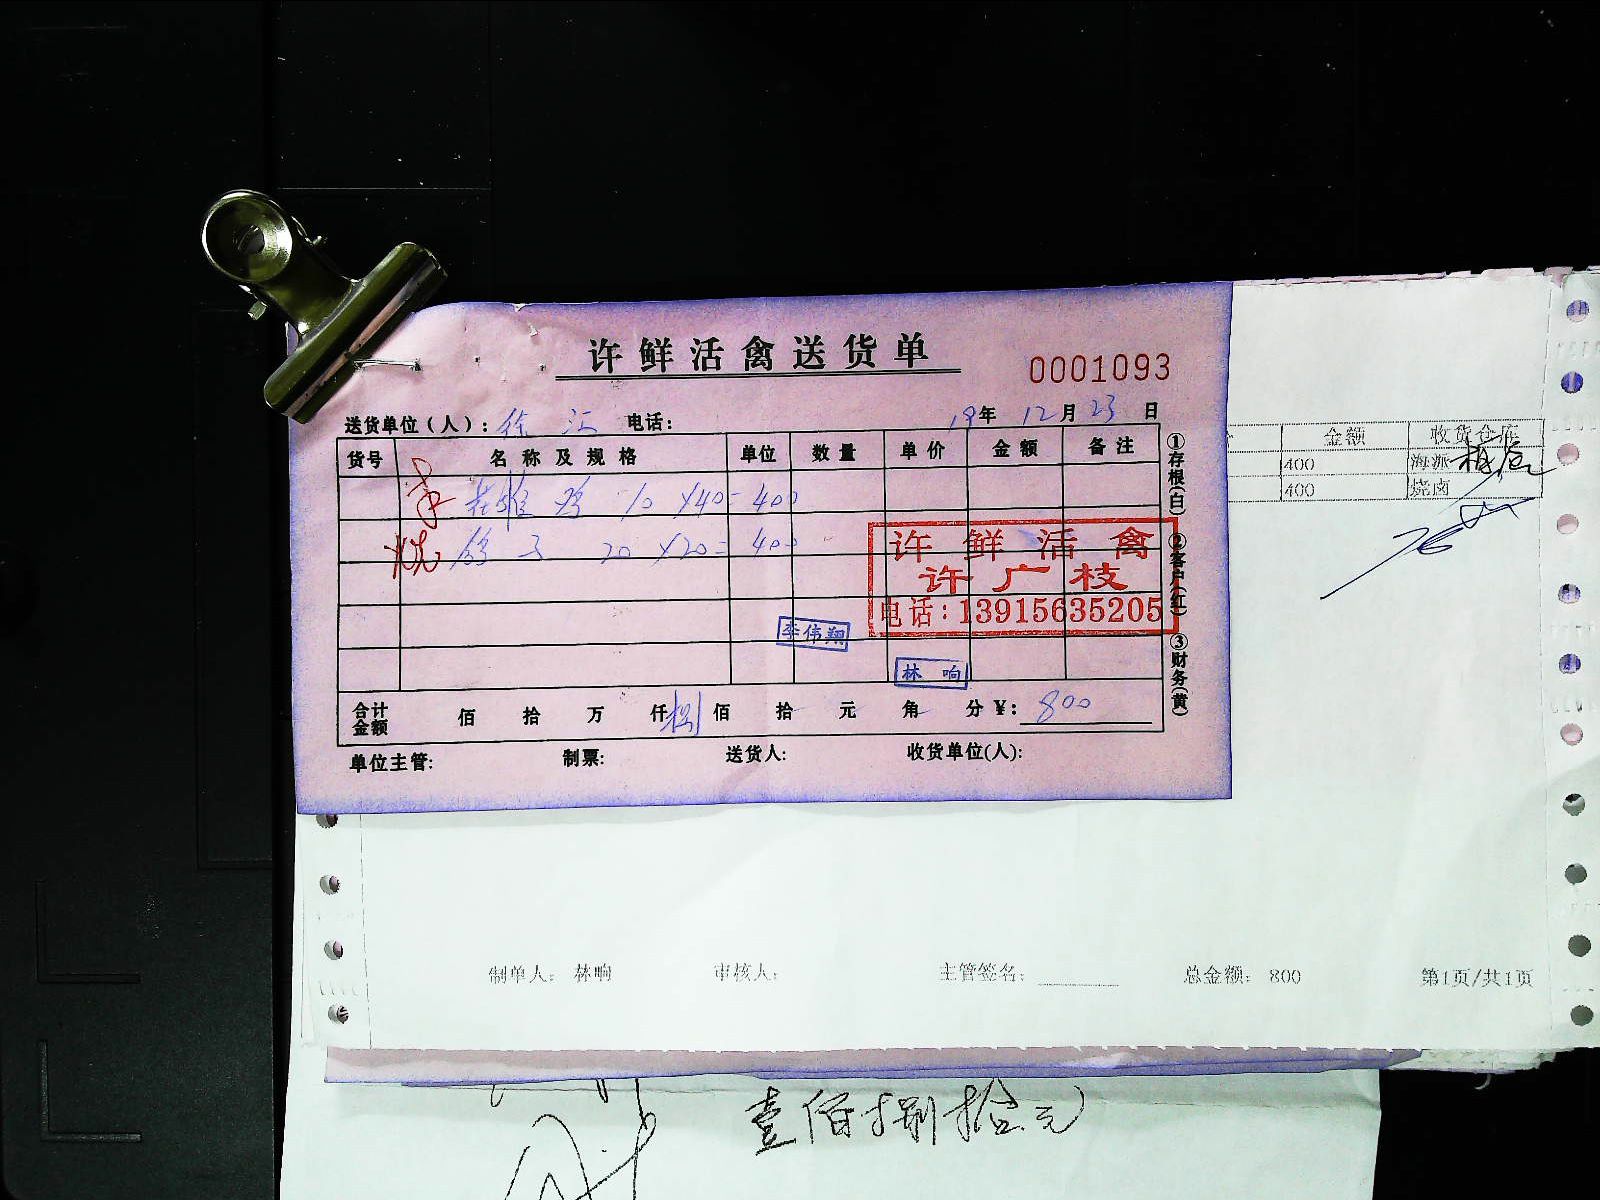 许鲜活禽送货单
0001093
送货单位（人）： 徐 汇 电话： 19年 12月 23日
货号 名称及规格 单位 数量 单价 金额 备注
鸡 10 ×40= 400
烧 鸽子 20 ×20= 400
许鲜活禽
许广枝
电话：13915635205
李伟翔
林响
合计金额 佰 拾 万 仟 捌佰 拾 元 角 分 ¥： 800
单位主管： 制票： 送货人： 收货单位(人)：
①存根(白) ②客户(红) ③财务(黄)
金额 收货仓库
400 海派
400 烧卤
制单人： 林响 审核人： 主管签名： 总金额： 800 第1页/共1页
壹佰捌拾元